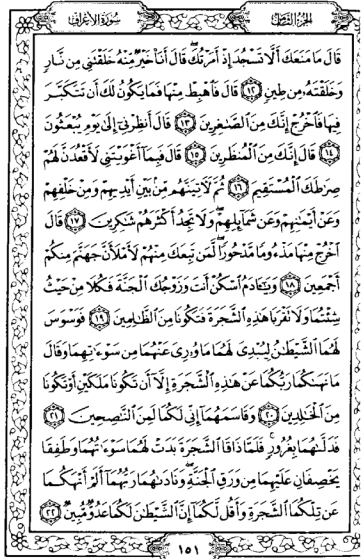 الجزء الثامن
سورة الأعراف
قَالَ مَا مَنَعَكَ أَلَّا تَسْجُدَ إِذْ أَمَرْتُكَ ۖ قَالَ أَنَا۠ خَيْرٌ مِّنْهُ خَلَقْتَنِى مِن نَّارٍ
وَخَلَقْتَهُۥ مِن طِينٍ ١٢ قَالَ فَٱهْبِطْ مِنْهَا فَمَا يَكُونُ لَكَ أَن تَتَكَبَّرَ
فِيهَا فَٱخْرُجْ إِنَّكَ مِنَ ٱلصَّٰغِرِينَ ١٣ قَالَ أَنظِرْنِىٓ إِلَىٰ يَوْمِ يُبْعَثُونَ
١٤ قَالَ إِنَّكَ مِنَ ٱلْمُنظَرِينَ ١٥ قَالَ فَبِمَآ أَغْوَيْتَنِى لَأَقْعُدَنَّ لَهُمْ
صِرَٰطَكَ ٱلْمُسْتَقِيمَ ١٦ ثُمَّ لَءَاتِيَنَّهُم مِّنۢ بَيْنِ أَيْدِيهِمْ وَمِنْ خَلْفِهِمْ
وَعَنْ أَيْمَٰنِهِمْ وَعَن شَمَآئِلِهِمْ ۖ وَلَا تَجِدُ أَكْثَرَهُمْ شَٰكِرِينَ ١٧ قَالَ
ٱخْرُجْ مِنْهَا مَذْءُومًا مَّدْحُورًا ۖ لَّمَن تَبِعَكَ مِنْهُمْ لَأَمْلَأَنَّ جَهَنَّمَ مِنكُمْ
أَجْمَعِينَ ١٨ وَيَٰٓـَٔادَمُ ٱسْكُنْ أَنتَ وَزَوْجُكَ ٱلْجَنَّةَ فَكُلَا مِنْ حَيْثُ
شِئْتُمَا وَلَا تَقْرَبَا هَٰذِهِ ٱلشَّجَرَةَ فَتَكُونَا مِنَ ٱلظَّٰلِمِينَ ١٩ فَوَسْوَسَ
لَهُمَا ٱلشَّيْطَٰنُ لِيُبْدِىَ لَهُمَا مَا وُۥرِىَ عَنْهُمَا مِن سَوْءَٰتِهِمَا وَقَالَ
مَا نَهَىٰكُمَا رَبُّكُمَا عَنْ هَٰذِهِ ٱلشَّجَرَةِ إِلَّآ أَن تَكُونَا مَلَكَيْنِ أَوْ تَكُونَا
مِنَ ٱلْخَٰلِدِينَ ٢٠ وَقَاسَمَهُمَآ إِنِّى لَكُمَا لَمِنَ ٱلنَّٰصِحِينَ ٢١
فَدَلَّىٰهُمَا بِغُرُورٍ ۚ فَلَمَّا ذَاقَا ٱلشَّجَرَةَ بَدَتْ لَهُمَا سَوْءَٰتُهُمَا وَطَفِقَا
يَخْصِفَانِ عَلَيْهِمَا مِن وَرَقِ ٱلْجَنَّةِ ۖ وَنَادَىٰهُمَا رَبُّهُمَآ أَلَمْ أَنْهَكُمَا
عَن تِلْكُمَا ٱلشَّجَرَةِ وَأَقُل لَّكُمَآ إِنَّ ٱلشَّيْطَٰنَ لَكُمَا عَدُوٌّ مُّبِينٌ ٢٢
١٥١